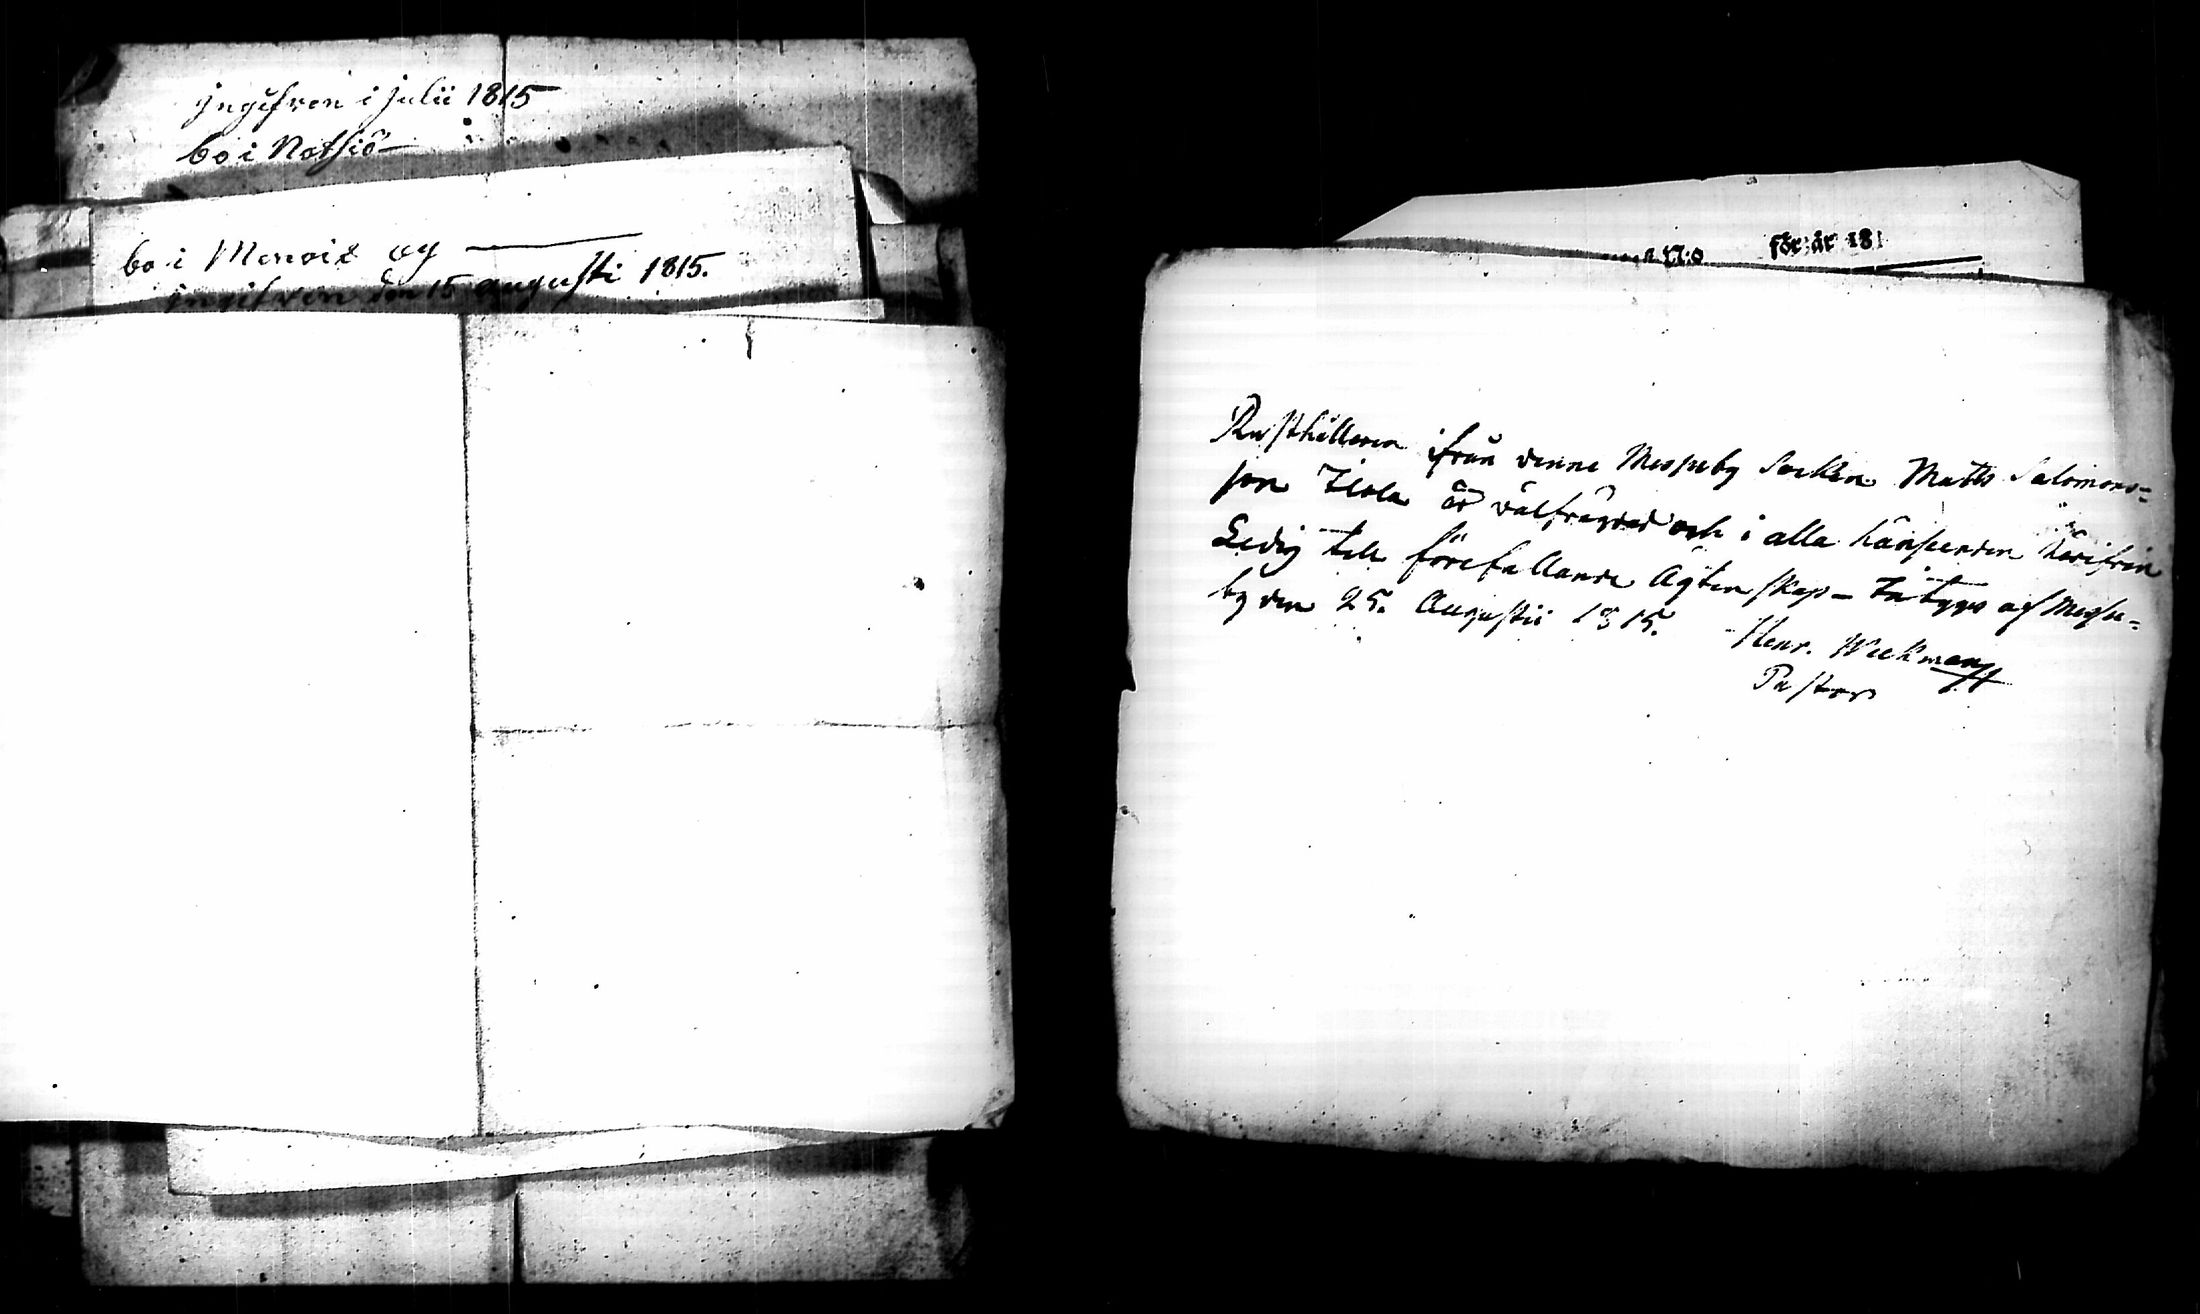 Ingifven i Julii 1815
bo i Notsiö
bo i Menois og
Ingifven den 15 augusti 1815.
N:o för år 181
Rusthållaren ifrån denne Messuby Socken Matts Salomons=
son Tiola är välfrägdad och i alla hänseenden härifrån
Ledig till förefallande Ägtenskap – Intygas af Messu=
by den 25. Augustii 1815.
Henr. Weckman
Pastor